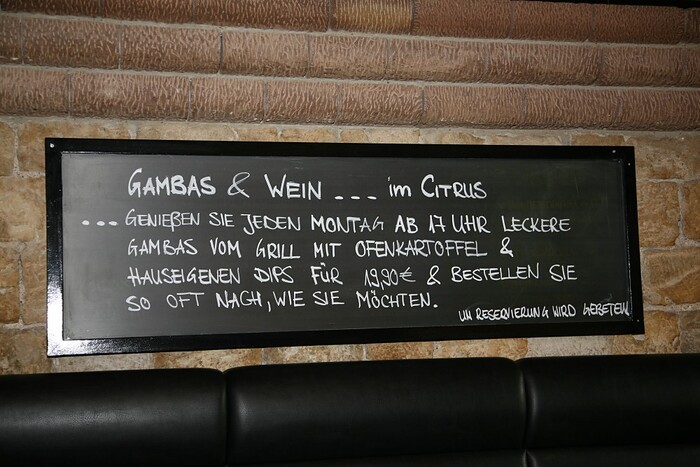 GAMBAS & WEIN ... im CITRUS
... GENIEẞEN SIE JEDEN MONTAG AB 17 UHR LECKERE
GAMBAS VOM GRILL MIT OFENKARTOFFEL &
HAUSEIGENEN DIPS FÜR 19,90€ & BESTELLEN SIE
SO OFT NACH, WIE SIE MÖCHTEN.
UM RESERVIERUNG WIRD GEBETEN